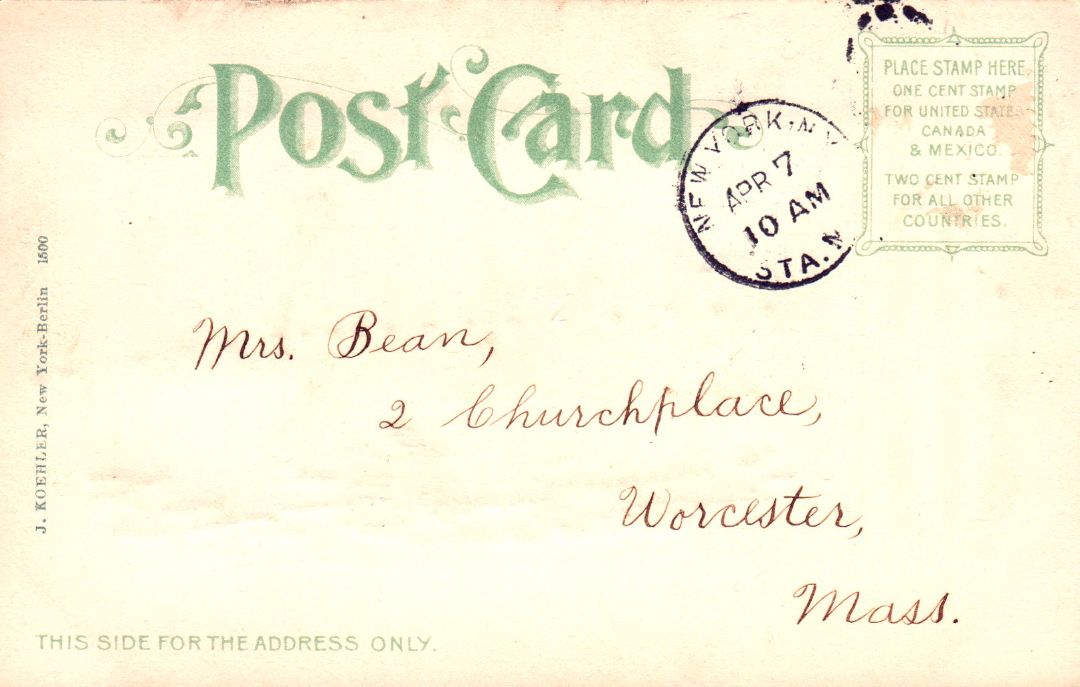 Post Card
NEW YORK, N.Y.
APR 7
10 AM
STA.
PLACE STAMP HERE
ONE CENT STAMP
FOR UNITED STATES
CANADA
& MEXICO.
TWO CENT STAMP
FOR ALL OTHER
COUNTRIES.
J. KOEHLER, New York-Berlin 1500
Mrs. Bean,
2 Churchplace,
Worcester,
Mass.
THIS SIDE FOR THE ADDRESS ONLY.